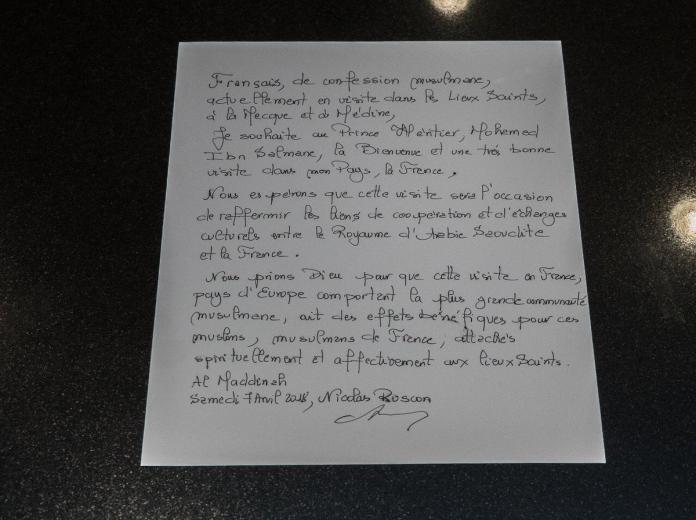 Français, de confession musulmane,
actuellement en visite dans les Lieux Saints,
à la Mecque et à Médine,
Je souhaite au Prince Héritier, Mohamed
Ibn Salmane, la Bienvenue et une très bonne
visite dans mon Pays, la France.
Nous espérons que cette visite sera l'occasion
de raffermir les liens de coopération et d'échanges
culturels entre le Royaume d'Arabie Saoudite
et la France.
Nous prions Dieu pour que cette visite en France,
pays d'Europe comportant la plus grande communauté
musulmane, ait des effets bénéfiques pour ces
muslims, musulmans de France, attachés
spirituellement et affectivement aux lieux Saints.
Al Maddinah
Samedi 7 Avril 2018, Nicolas Roscon